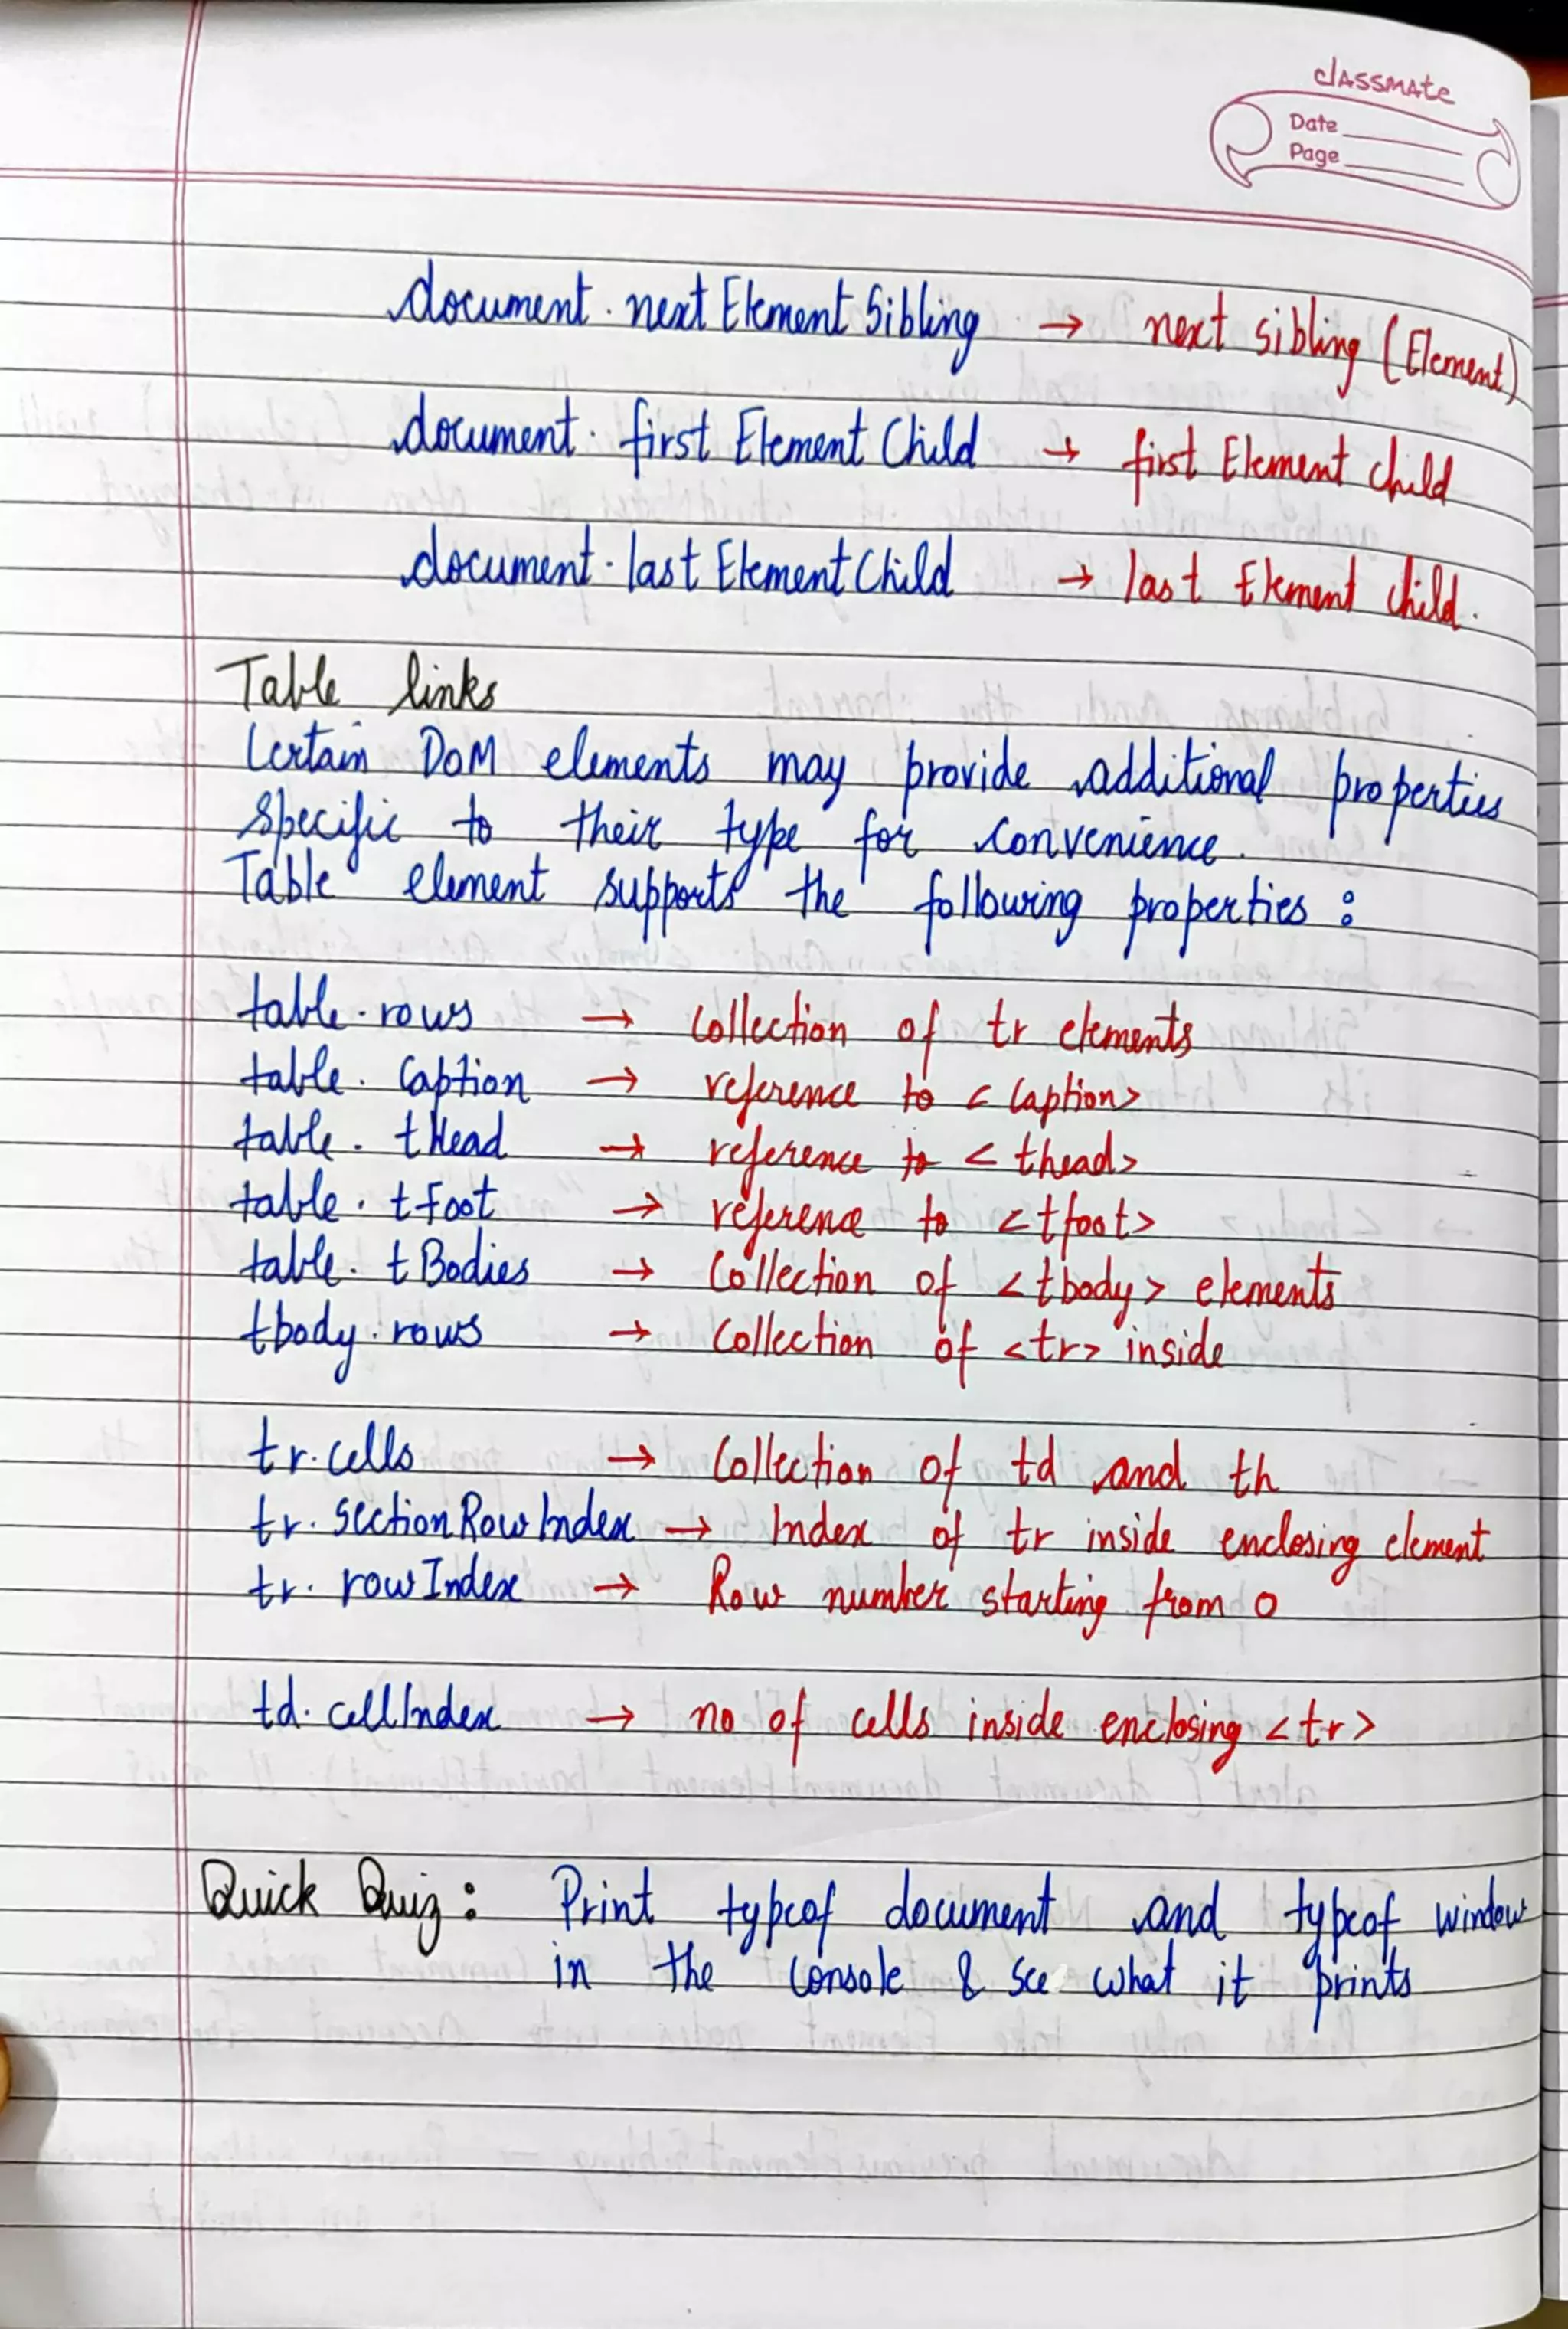 classmate
Date
Page
document.nextElementSibling → next sibling (Element)
document.firstElementChild → first Element child
document.lastElementChild → last Element child.
Table links
Certain DOM elements may provide additional properties
specific to their type for convenience.
Table element supports the following properties :
table.rows → Collection of tr elements
table.Caption → reference to <Caption>
table.tHead → reference to <thead>
table.tFoot → reference to <tfoot>
table.tBodies → Collection of <tbody> elements
tbody.rows → Collection of <tr> inside
tr.cells → Collection of td and th
tr.sectionRowIndex → Index of tr inside enclosing element
tr.rowIndex → Row number starting from 0
td.cellIndex → no of cells inside enclosing <tr>
Quick Quiz : Print typeof document and typeof window
in the Console & see what it prints